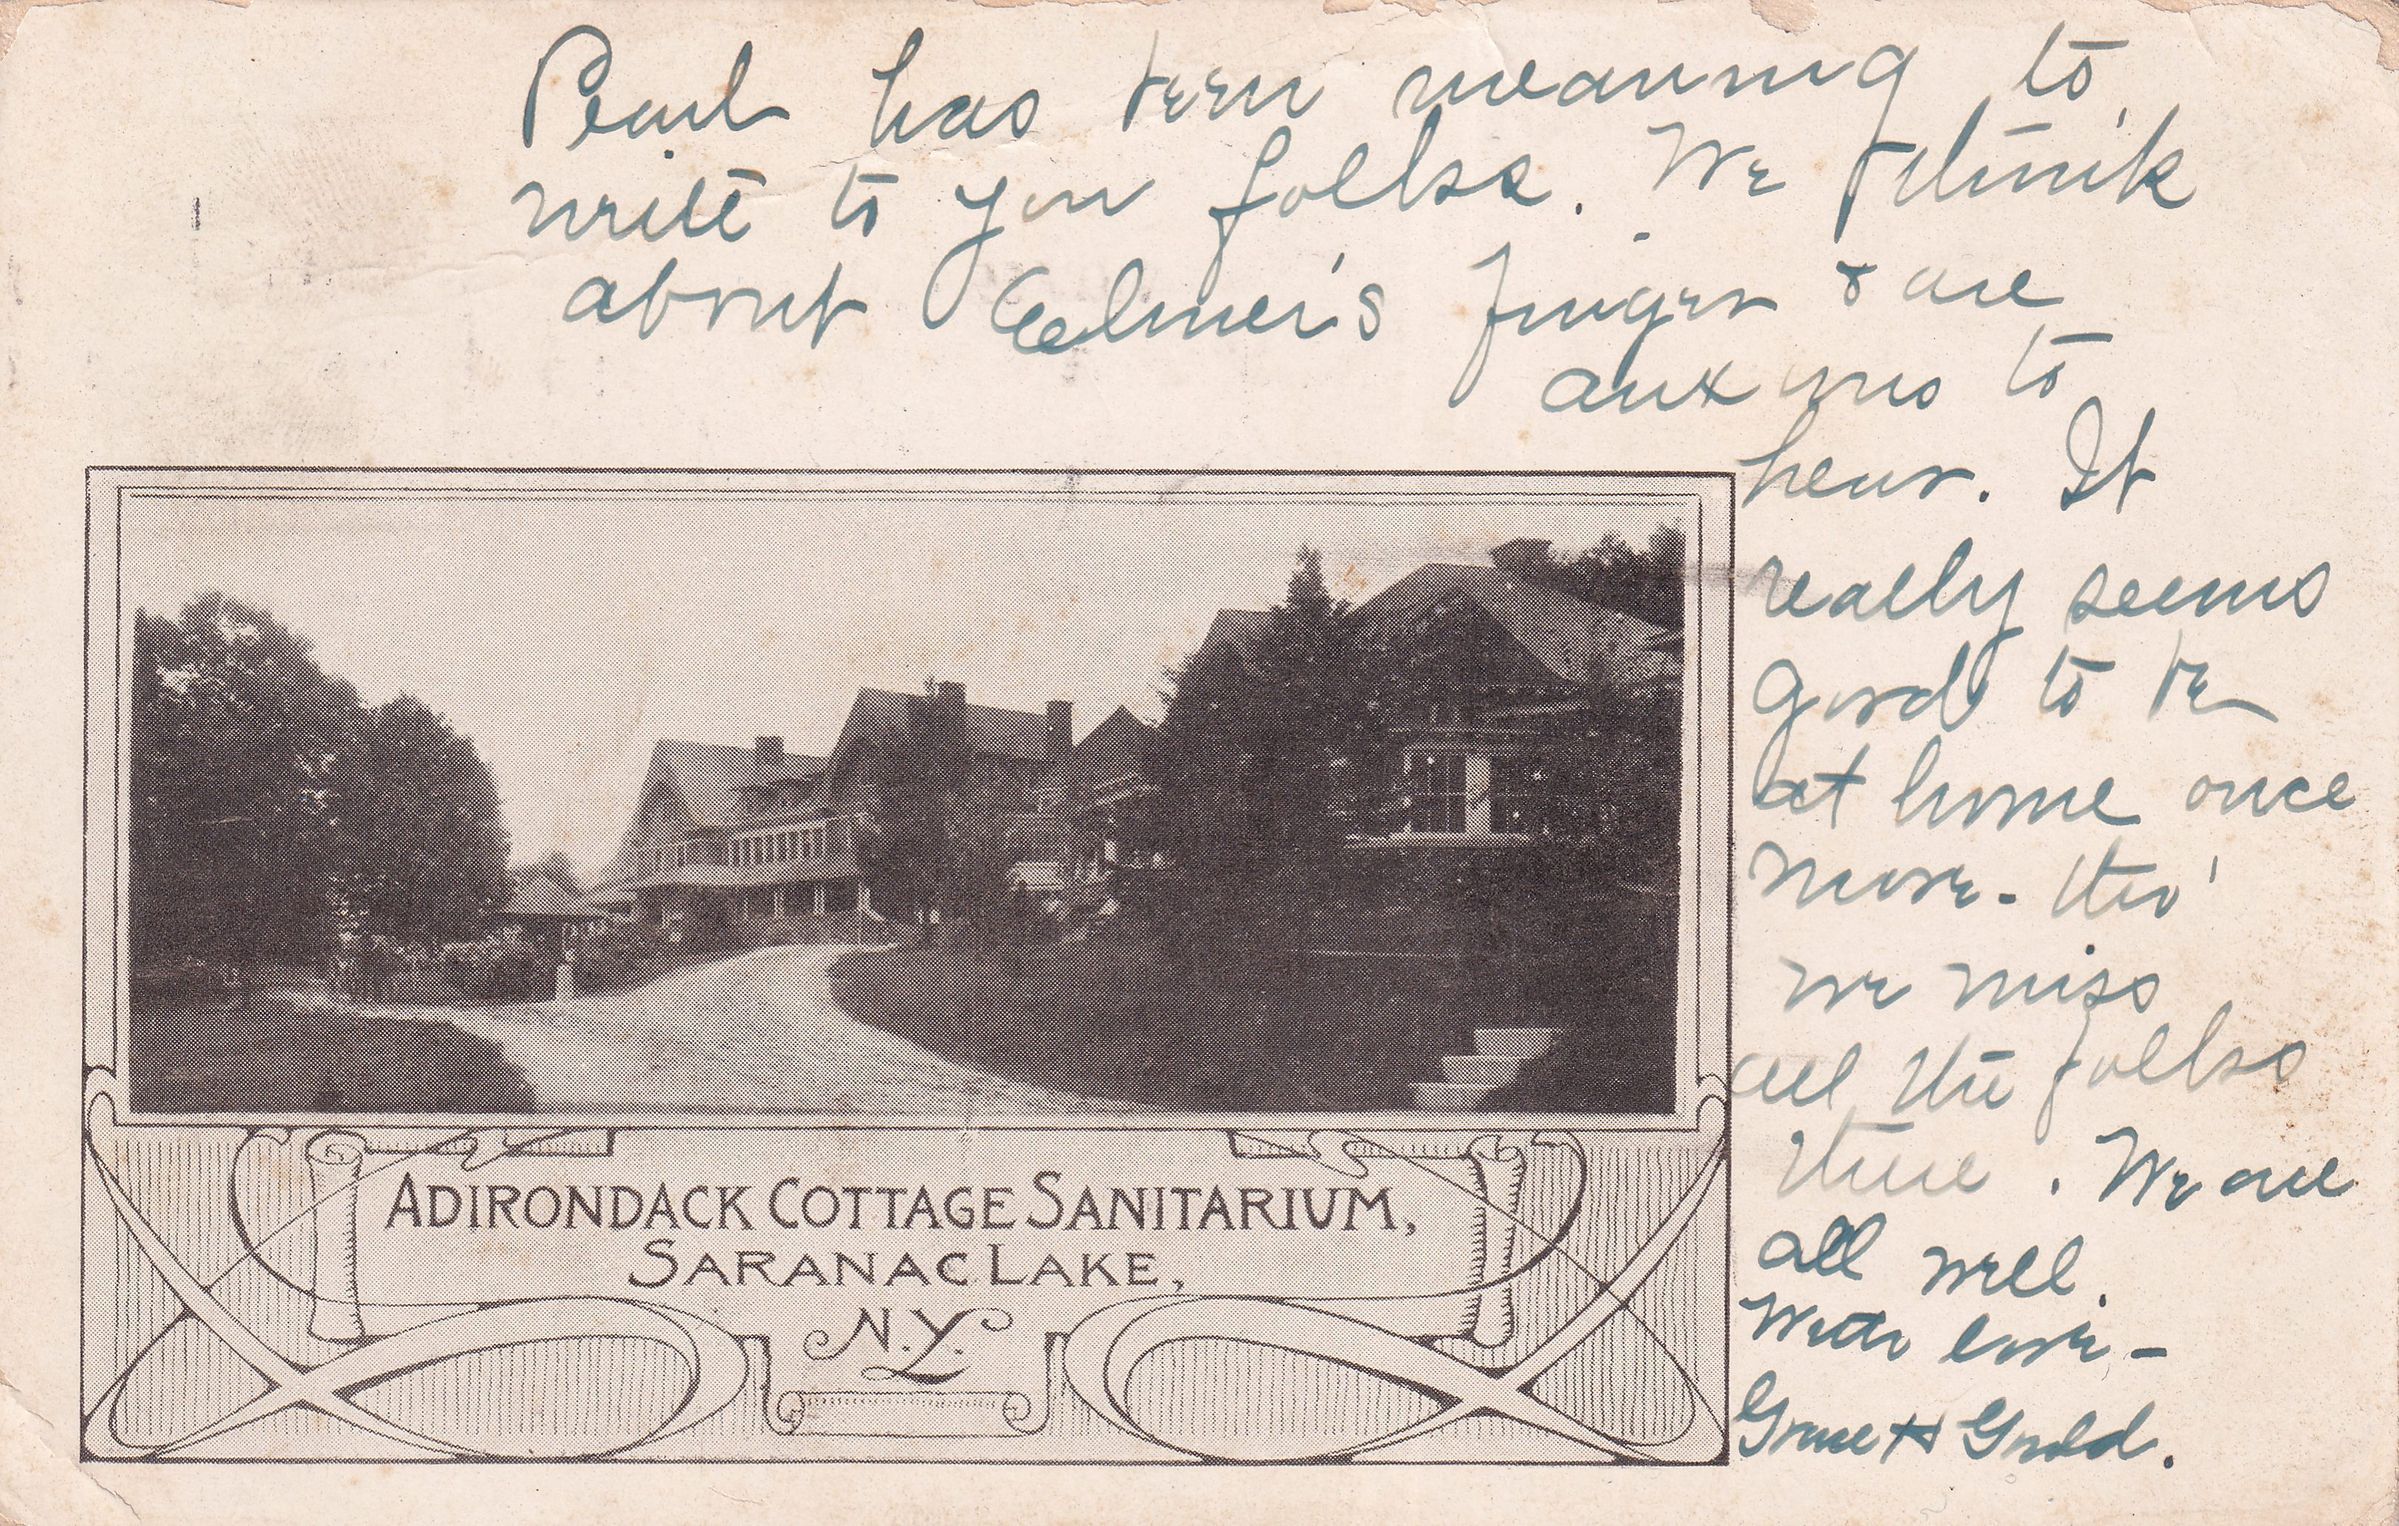 Pearl has been meaning to
write to you folkse. We think
about Elmer's finger & are
anxious to
hear. It
really seems
good to be
at home once
more - tho'
we miss
all the folks
there. We are
all well.
With love -
Grace H Gould.
ADIRONDACK COTTAGE SANITARIUM,
SARANAC LAKE,
N.Y.